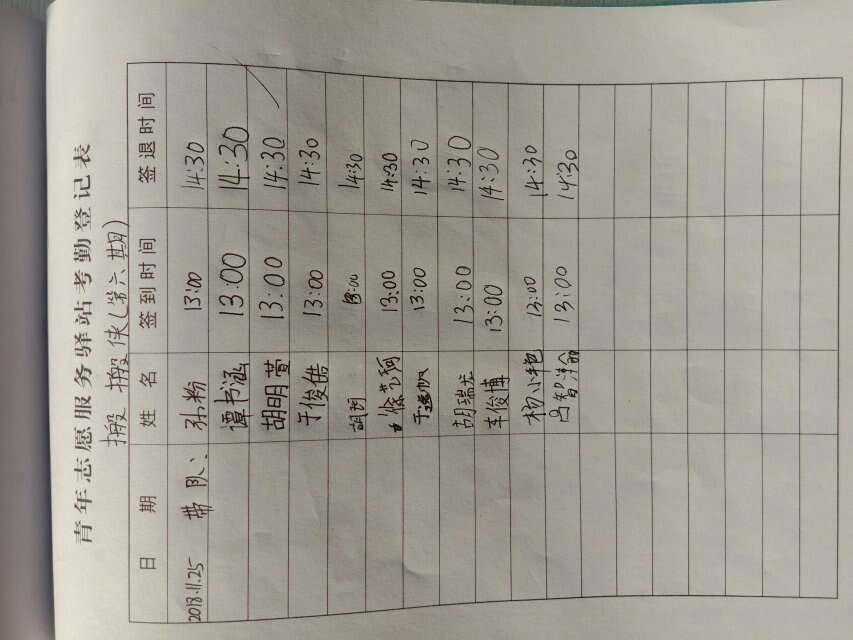 青年志愿服务驿站考勤登记表
搬搬侠(第六期)
日 期 姓 名 签到时间 签退时间
2018.11.25 带队: 孙粉 13:00 14:30
谭书涵 13:00 14:30
胡明萱 13:00 14:30
于俊佛 13:00 14:30
胡珂 13:00 14:30
徐艺珂 13:00 14:30
于逸帆 13:00 14:30
胡瑞光 13:00 14:30
车俊博 13:00 14:30
杨小艳 13:00 14:30
吕智 13:00 14:30